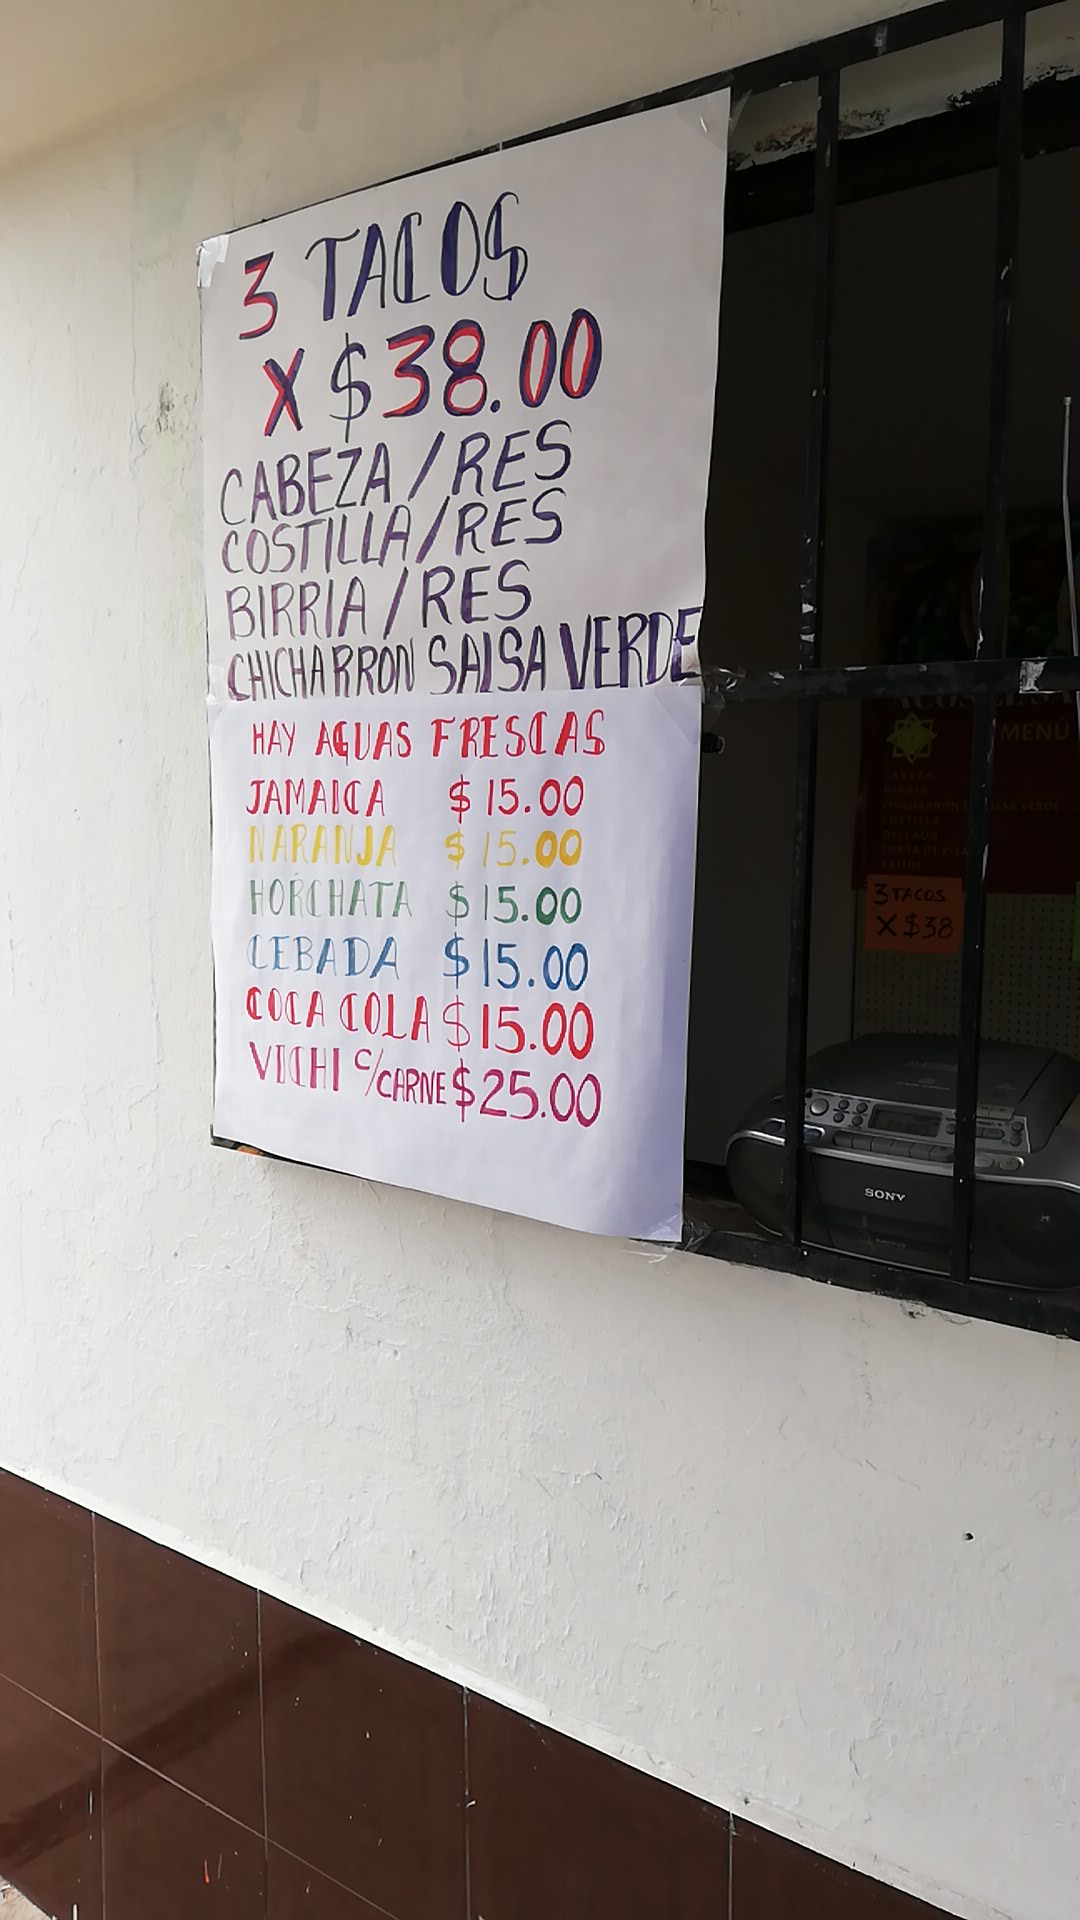 3 TACOS
X $38.00
CABEZA/RES
COSTILLA/RES
BIRRIA/RES
CHICHARRON SALSA VERDE
HAY AGUAS FRESCAS
JAMAICA $15.00
NARANJA $15.00
HORCHATA $15.00
CEBADA $15.00
COCA COLA $15.00
VICHI C/CARNE $25.00
MENÚ
CABEZA
BIRRIA
CHICHARRON SALSA VERDE
COSTILLA
DISCADA
FRIJOL
3 TACOS
X $38
SONY